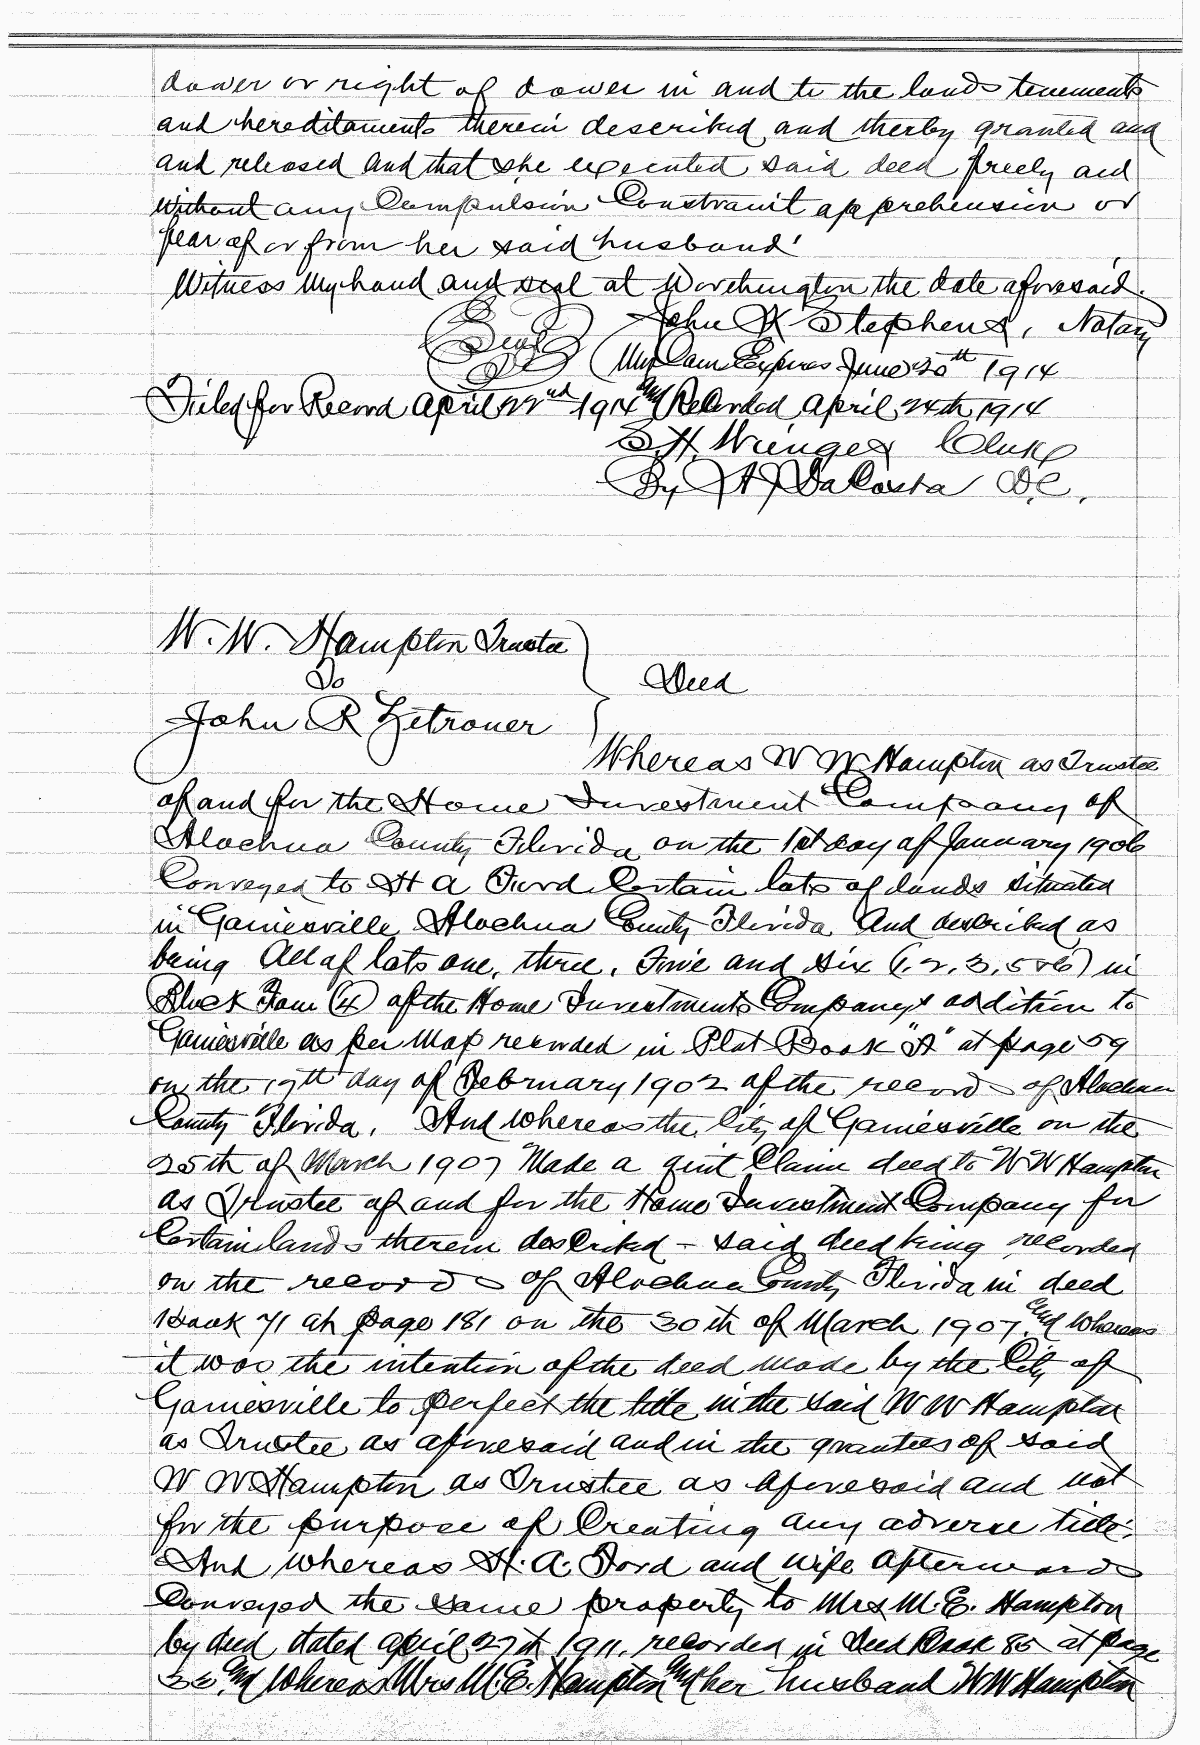 dower or right of dower in and to the lands tenements
and hereditaments therein described and therby granted and
and released and that she executed said deed freely and
without any Compulsion Constraint apprehension or
fear of or from her said husband'
Witness My hand and seal at Worthington the date aforesaid.
Seal John K Stephens, Notary
My Com Expires June 20th 1914
Filed for Record April 22nd 1914 And Recorded April 24th 1914
S.H. Wienges Clerk
By H J DaCosta D.C.
W. W. Hampton Trustee
To
Deed
John R Zetrouer
Whereas W W Hampton as Trustee
of and for the Home Investment Company of
Alachua County Florida on the 1st day of January 1906
Conveyed to H A Ford Certain lots of lands situated
in Gainesville Alachua County Florida And described as
being All of lots one, three, Five and six (1, 2, 3, 5 & 6) in
Block Four (4) of the Home Investments Companys addition to
Gainesville as per Map recorded in Plat Book "A" at page 59
on the 17th day of February 1902 of the records of Alachua
County Florida. And whereas the City of Gainesville on the
25th of March 1907 Made a quit Claim deed to W W Hampton
as Trustee of and for the Home Investment Company for
Certain lands therein described - said deed being recorded
on the records of Alachua County Florida in deed
Book 71 at page 181 on the 30th of March 1907 And Whereas
it was the intention of the deed made by the City of
Gainesville to perfect the title in the said W W Hampton
as Trustee as aforesaid and in the grantees of said
W W Hampton as Trustee as aforesaid and not
for the purpose of Creating any adverse title.
And whereas H. A. Ford and wife afterwards
Conveyed the same property to Mrs M. E. Hampton
by deed dated April 27th 1911, recorded in Deed Book 85 at page
And Whereas Mrs M. E. Hampton And her husband W W Hampton